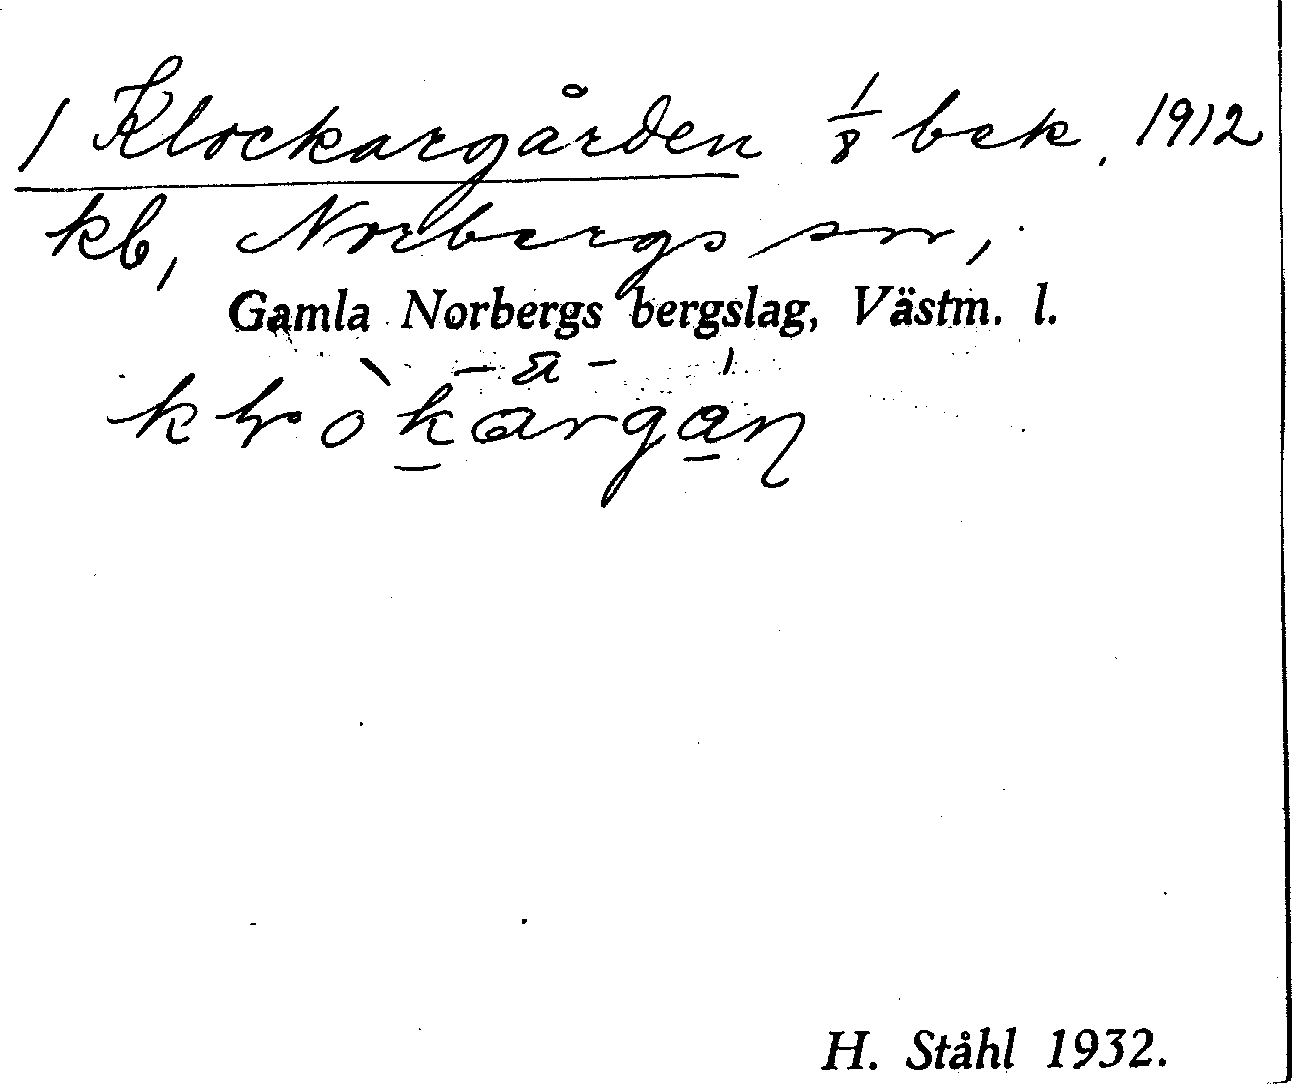 1 Klockargården 1/8 bek. 1912
kb, Norbergs sn,
Gamla Norbergs bergslag, Västm. l.
H. Ståhl 1932.